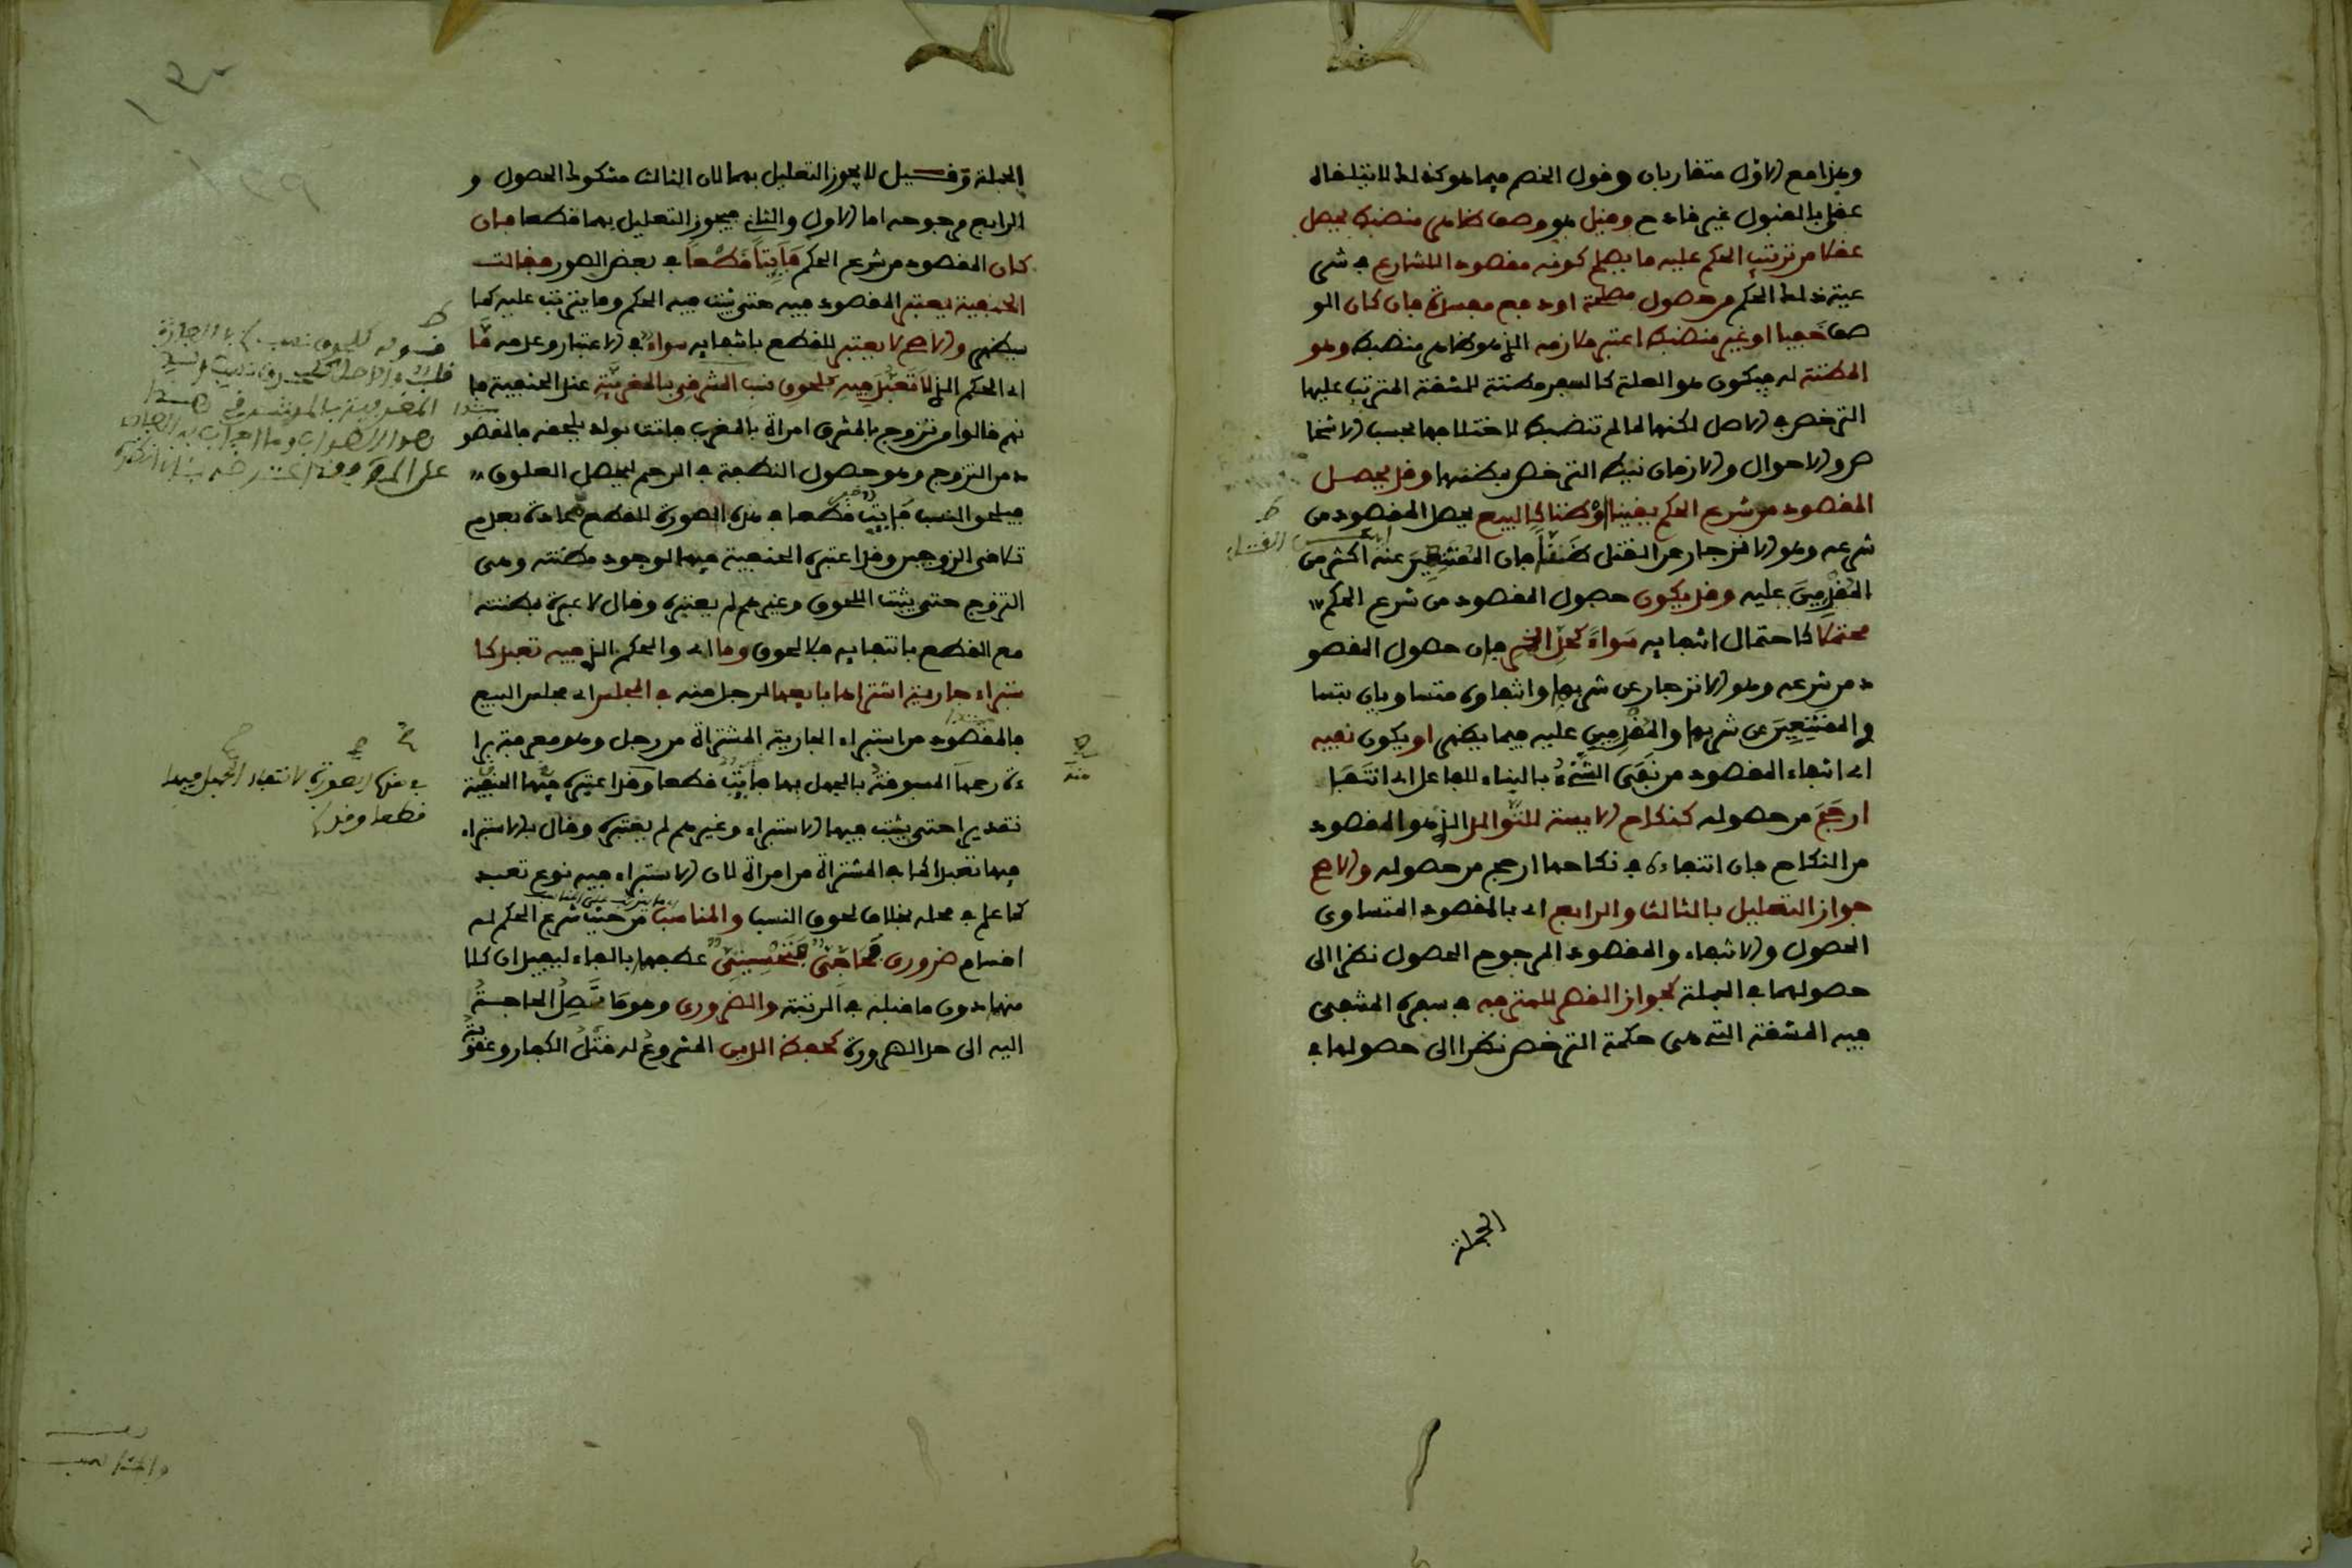 وهذا مع الاول متقاربان وقول الخصم فيما هو كذلك لا يتلقاه
عقلي بالقبول غير قادح وقيل هو وصف ظاهر منضبط يحصل
عقلا من ترتيب الحكم عليه ما يصلح كونه مقصودا للشارع في شر
عية ذلك الحكم من حصول مصلحة او دفع مفسدة فان كان الو
صف خفيا او غير منضبط اعتبر ملازمه الذي هو ظاهر منضبط وهو
المظنة له فيكون هو العلة كالسفر مظنة للمشقة المترتب عليها
الترخص في الاصل لكنها لما لم تنضبط لاختلافها بحسب الاشخا
ص والاحوال والازمان نيط الترخص بمظنتها وقد يحصل
المقصود من شرع الحكم يقينا او ظنا كالبيع يحصل المقصود من
شرعه وهو الانزجار عن القتل ظنا فان الممتنعين عنه اكثر من
المقدمين عليه وقد يكون حصول المقصود من شرع الحكم
محتملا كاحتمال انتفائه سواء كحد الخمر فان حصول المقصو
د من شرعه وهو الانزجار عن شربها وانتفاؤه متساويان بتسا
وي الممتنعين عن شربها والمقدمين عليه فيما يظهر او يكون نفيه
اي انتفاء المقصود من نفى الشيء بالبناء للفاعل اي انتفا
ارجح من حصوله كنكاح الايسة للتوالد الذي هو المقصود
من النكاح فان انتفاءه في نكاحها ارجح من حصوله والاصح
جواز التعليل بالثالث والرابع اي بالمقصود المتساوي
الحصول والانتفاء والمقصود المرجوح الحصول نظرا الى
حصولهما في الجملة كجواز القصر للمترفه في سفره المنتفي
فيه المشقة التي هي حكمة الترخص نظرا الى حصولها في
الجملة
الجملة وقيل لا يجوز التعليل بهما لان الثالث مشكوك الحصول و
الرابع مرجوحه اما الاول والثاني فيجوز التعليل بهما قطعا فان
كان المقصود من شرع الحكم فايتا قطعا في بعض الصور فقالت
الحنفية يعتبر المقصود فيه حتى يثبت فيه الحكم وما يترتب عليه كما
سيظهر والاصح لا يعتبر للقطع بانتفايه سواء في الاعتبار وعدمه ما
اي الحكم الذي لا تعبد فيه كلحوق نسب المشرقي بالمغربية عند الحنفية فا
نهم قالوا من تزوج بالمشرق امراة بالمغرب فاتت بولد يلحقه فالمقصو
د من التزوج وهو حصول النطفة في الرحم ليحصل العلوق
فيلحق النسب فايت قطعا في هذه الصورة للقطع عادة بعدم
تلاقي الزوجين وقد اعتبره الحنفية فيها لوجود مظنته وهي
التزوج حتى يثبت اللحوق وغيرهم لم يعتبره وقال لا عبرة بمظنته
مع القطع بانتفايه فلا لحوق وما اي والحكم الذي فيه تعبد كا
ستبراء جارية اشتراها بايعها لرجل منه في المجلس اي مجلس البيع
فالمقصود من استبراء الجارية المشتراة من رجل وهو معرفة برا
ءة رحمها المسبوقة بالجهل بها فايت قطعا وقد اعتبره فيها الحنفية
تقديرا حتى يثبت فيها الاستبراء وغيرهم لم يعتبره وقال بالاستبراء
فيها تعبدا كما في المشتراة من امراة لان الاستبراء فيه نوع تعبد
كما علم في محله بخلاف لحوق النسب والمناسب من حيث شرع الحكم له
اقسام ضروري فحاجي فتحسيني عطفهما بالفاء ليفيد ان كلا
منهما دون ما قبله في الرتبة والضروري وهو ما تصل الحاجة
اليه الى حد الضرورة كحفظ الدين المشروع له قتل الكفار وعقوبة
في هذه الصورة لانتفاء الجهل فيها
قطعا وقد